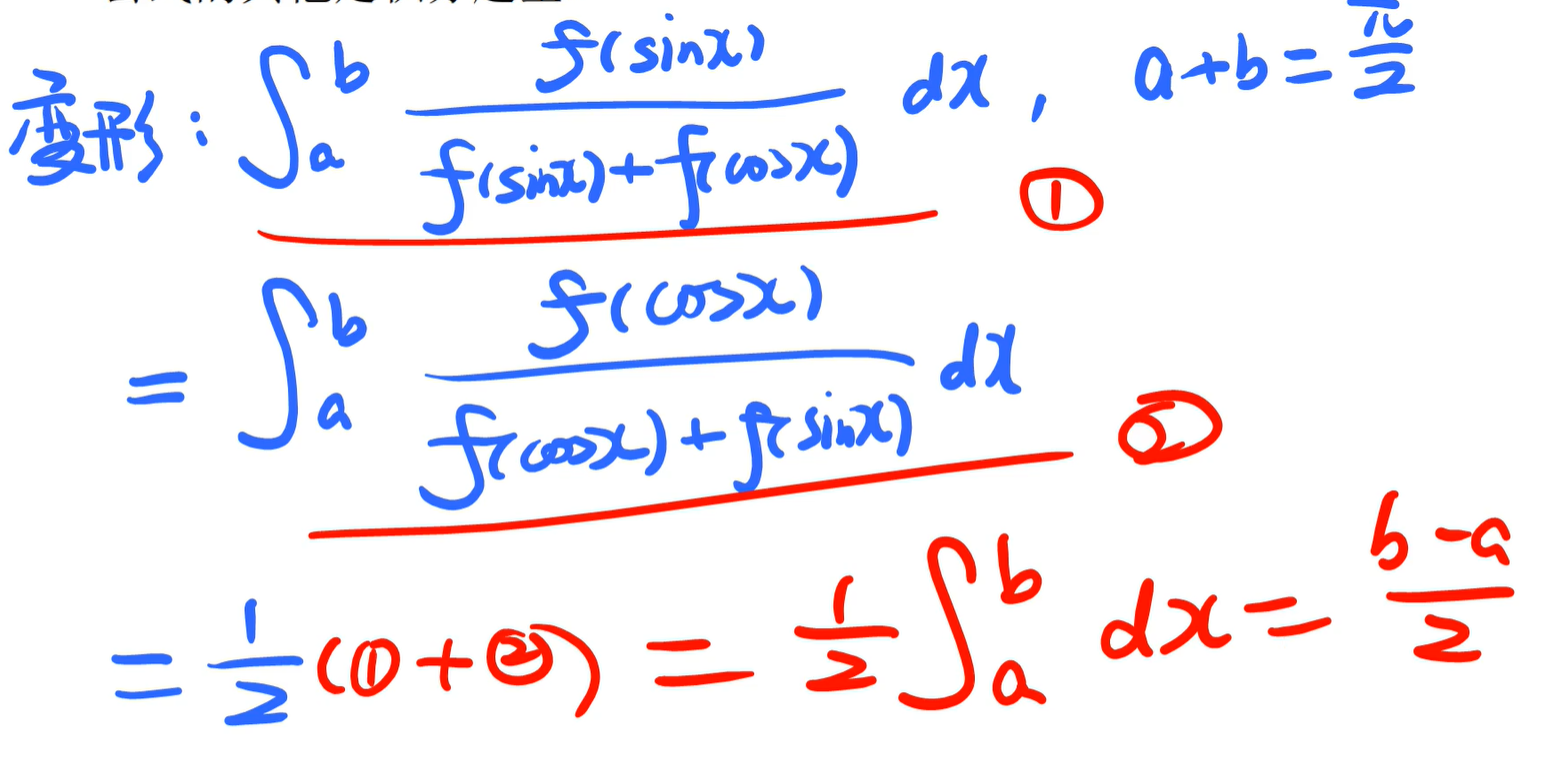 变形：∫_a^b f(sinx)/(f(sinx)+f(cosx)) dx， a+b=π/2 ①
= ∫_a^b f(cosx)/(f(cosx)+f(sinx)) dx ②
= 1/2 (①+②) = 1/2 ∫_a^b dx = (b-a)/2